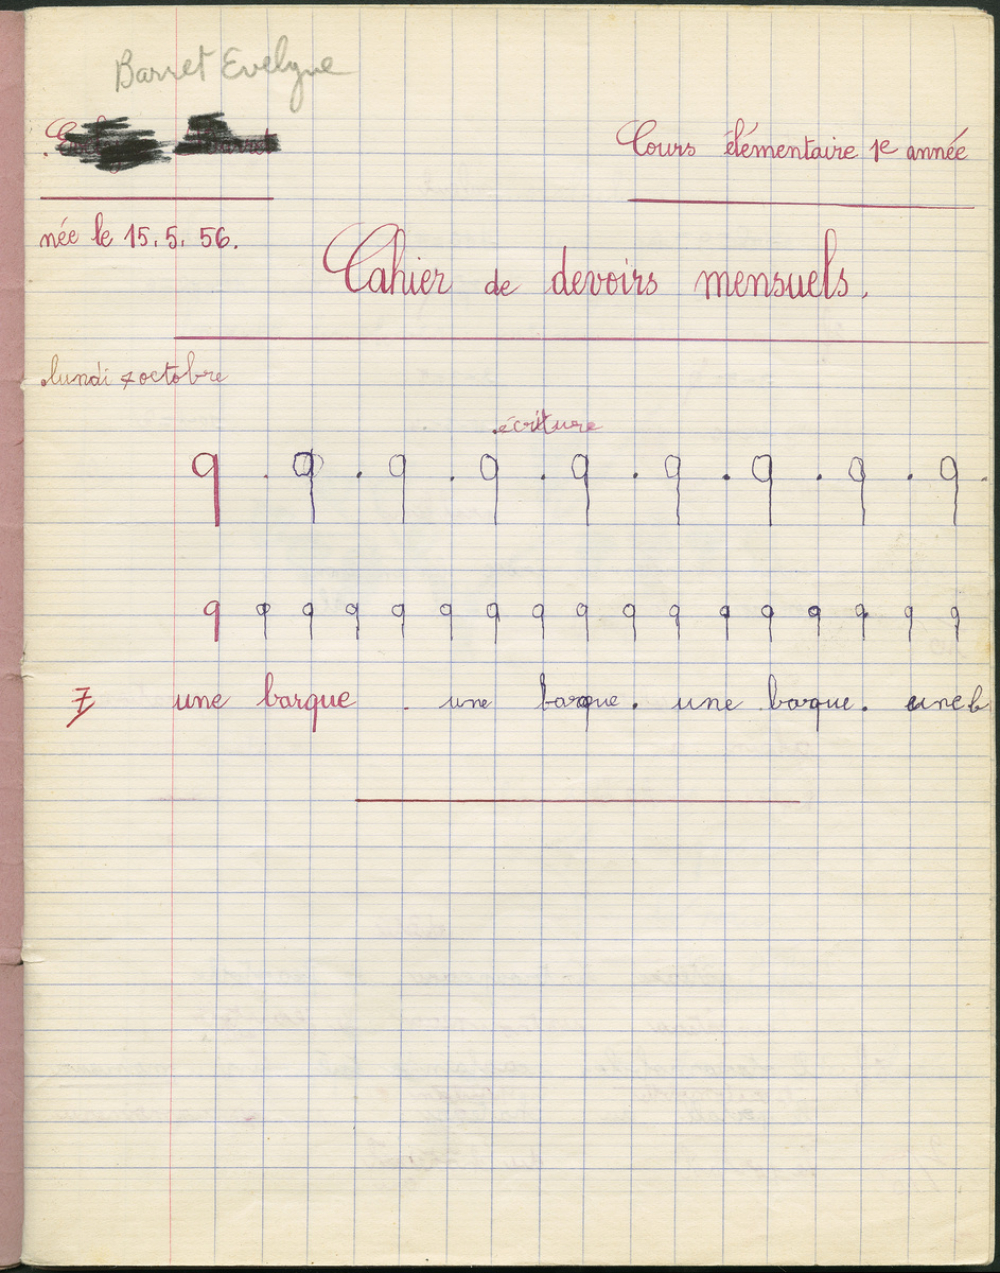 Barret Evelyne
Cours élémentaire 1e année
née le 15.5.56.
Cahier de devoirs mensuels.
lundi 7 octobre
écriture
q . q . q . q . q . q . q . q . q .
q q q q q q q q q q q q q q q q q
7 une barque . une barque . une barque . une b